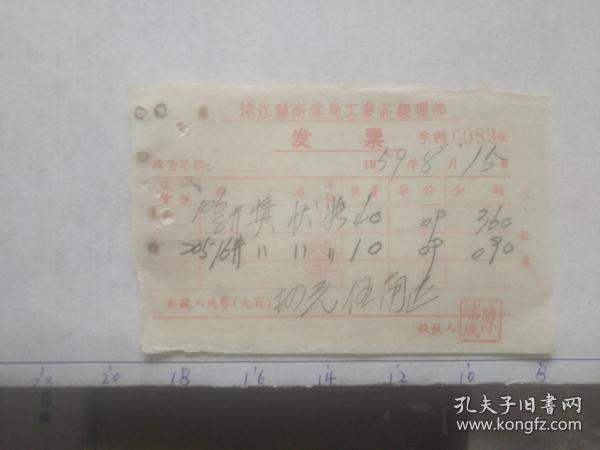 连江縣商業局工業品經理部
发 票 字第 16089 號
購貨單位: 1959年8月15日
品名 單位 數量 單價 金額
8开奖状 张 40 09 360
205 16开 〃 〃 〃 10 09 090
实收人民幣(大寫) 肆元伍角正
收款人 陳瑞成
二、發票
22 20 18 16 14 12 10 8
孔夫子旧书网
www.kongfz.com